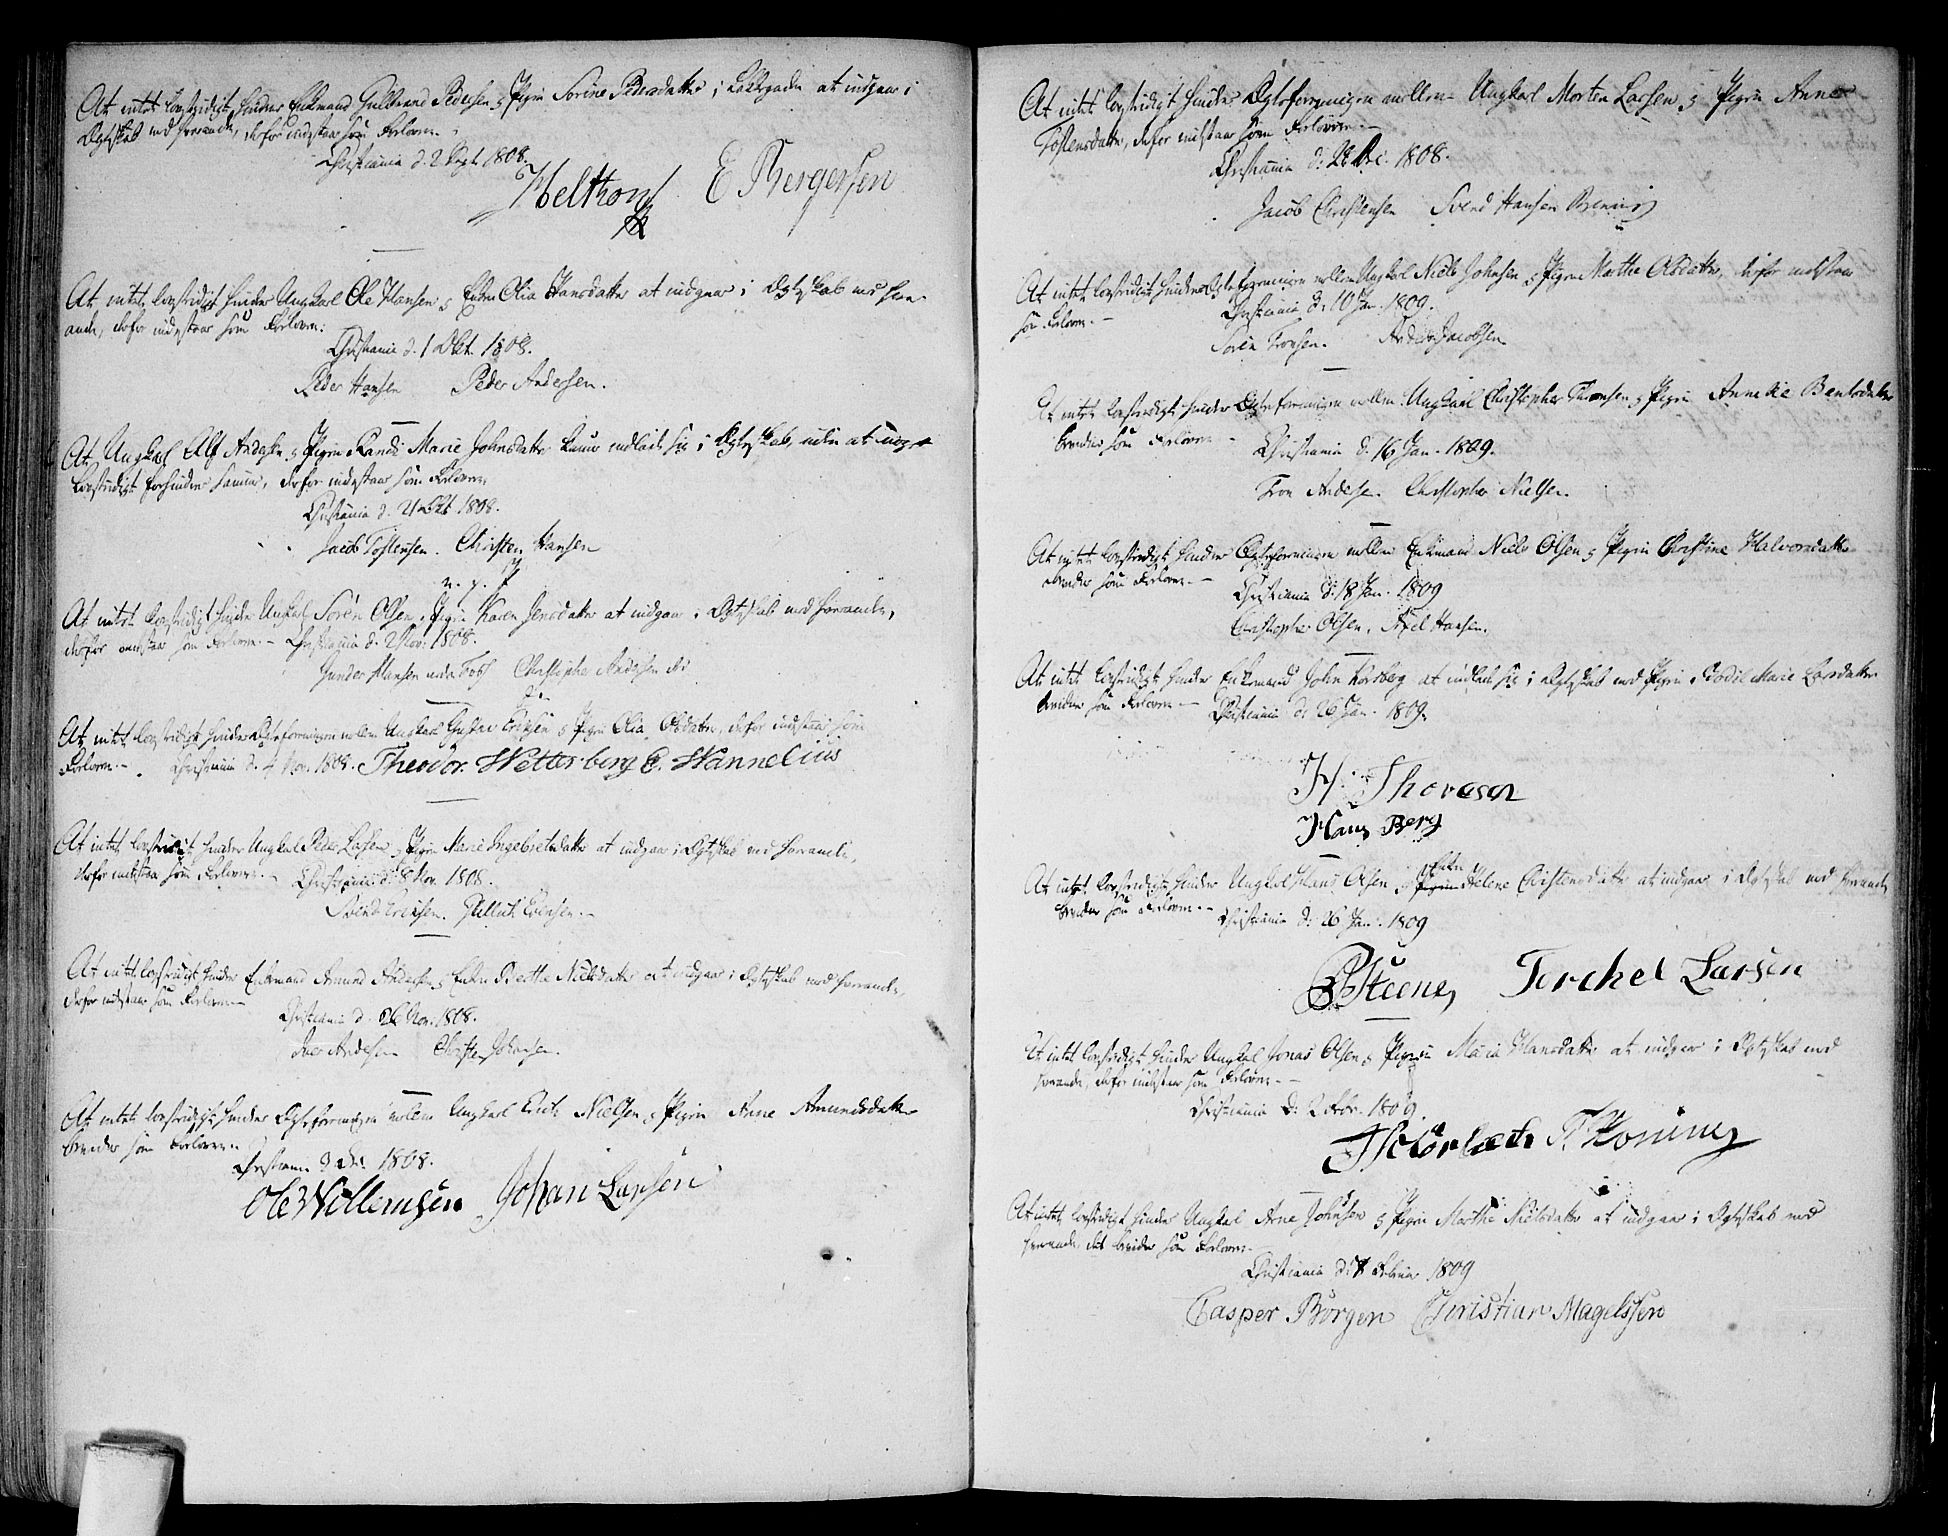 At intet lovstridigt hindrer Enkemand Gulbrand Pedersen og Pigen Sorine Pedersdatter i at indgaae i
Ægteskab med hverandre, derfor indestaar som Forlovere.
Christiania d. 2 Sept. 1808.
Heltzen E Bergersen
At intet lovstridigt hindrer Ungkarl Ole Hansen og Enken Olia Hansdatter at indgaae i Ægteskab med hver-
andre, derfor indestaar som Forlovere.
Christiania d. 1 Okt. 1808.
Peder Hansen Peder Andersen.
At Ungkarl Elf Andersen og Pigen Randi Marie Johnsdatter kunne indlade sig i Ægteskab, uden at noget
lovstridigt forhindrer samme, derfor indestaar som Forlovere
Christiania d. 21 Okt 1808.
Jacob Tostensen. Christen Hansen
At intet lovstridigt hindrer Ungkarl Sorén Olsen og Pigen Karen Jensdatter at indgaae i Ægteskab med hverandre,
derfor indestaar som Forlovere. - Christiania d. 2 Nov. 1808.
Gunder Hansen Christopher Andersen
At intet lovstridigt hindrer Ægteforeningen mellem Ungkarl Gustav Erichsen og Pigen Olia Olsdatter, derfor indestaar som
Forlovere. - Christiania d. 4 Nov. 1808. Theodor. Wetterberg E. Wannelius
At intet lovstridigt hindrer Ungkarl Peder Larsen og Pigen Marie Ingebretsdatter at indgaae i Ægteskab med hverandre,
derfor indestaar som Forlovere. - Christiania d. 8 Nov. 1808.
Svend Evensen.
At intet lovstridigt hindrer Enkemand Amund Andersen og Enken Berthe Nielsdatter at indgaae i Ægteskab med hverandre,
derfor indestaar som Forlovere
Christiania d. 26 Nov. 1808.
Iver Andersen Christen Johansen.
At intet lovstridigt hindrer Ægteforeningen mellem Ungkarl Erich Nielsen og Pigen Anne Amundsdatter
bevidner som Forlovere.
Christiania 9 Dec 1808.
Ole Willemsen Johan Larsen
At intet lovstridigt hindrer Ægteforeningen mellem Ungkarl Morten Larsen og Pigen Anne
Tostensdatter, derfor indestaar som Forlovere. -
Christiania d. 28 Dec. 1808.
Jacob Christensen Svend Hansen
At intet lovstridigt hindrer Ægteforeningen mellem Ungkarl Niels Johnsen og Pigen Marthe Olsdatter, derfor indestaar
som Forlovere. - Christiania d. 10 Jan. 1809.
Sorén Tronsen. Anders Jacobsen
At intet lovstridigt hindrer Ægteforeningen mellem Ungkarl Christopher Thronsen og Pigen Annekie Bentsdatter
bevidner som Forlovere -
Christiania d. 16 Jan. 1809.
Tron Andersen. Christopher Nielsen.
At intet lovstridigt hindrer Ægteforeningen mellem Enkemand Niels Olsen og Pigen Christine Halvorsdatter
bevidner som Forlovere. -
Christiania d. 18 Jan. 1809
Christopher Olsen. Axel Hansen.
At intet lovstridigt hindrer Enkemand John Korsberg at indlade sig i Ægteskab med Pigen Bodil Marie Larsdatter
bevidner som Forlovere - Christiania d. 26 Jan. 1809.
H. Thoresen
Hans Berg
At intet lovstridigt hindrer Ungkarl Hans Olsen og Enken Helene Christensdatter at indgaae i Ægteskab med hverandre
bevidner som Forlovere. - Christiania d. 26 Jan. 1809
Steene, Torchel Larsen
At intet lovstridigt hindrer Ungkarl Jonas Olsen og Pigen Maria Hansdatter at indgaae i Ægteskab med
hverandre, derfor indestaar som Forlovere. -
Christiania d. 2 Febr. 1809.
At intet lovstridigt hindrer Ungkarl Arne Johnsen og Pigen Marthe Nielsdatter at indgaae i Ægteskab med
hverandre, det bevidner som Forlovere.
Christiania d. 8 Februar 1809
Casper Börgen Christian Magelssen